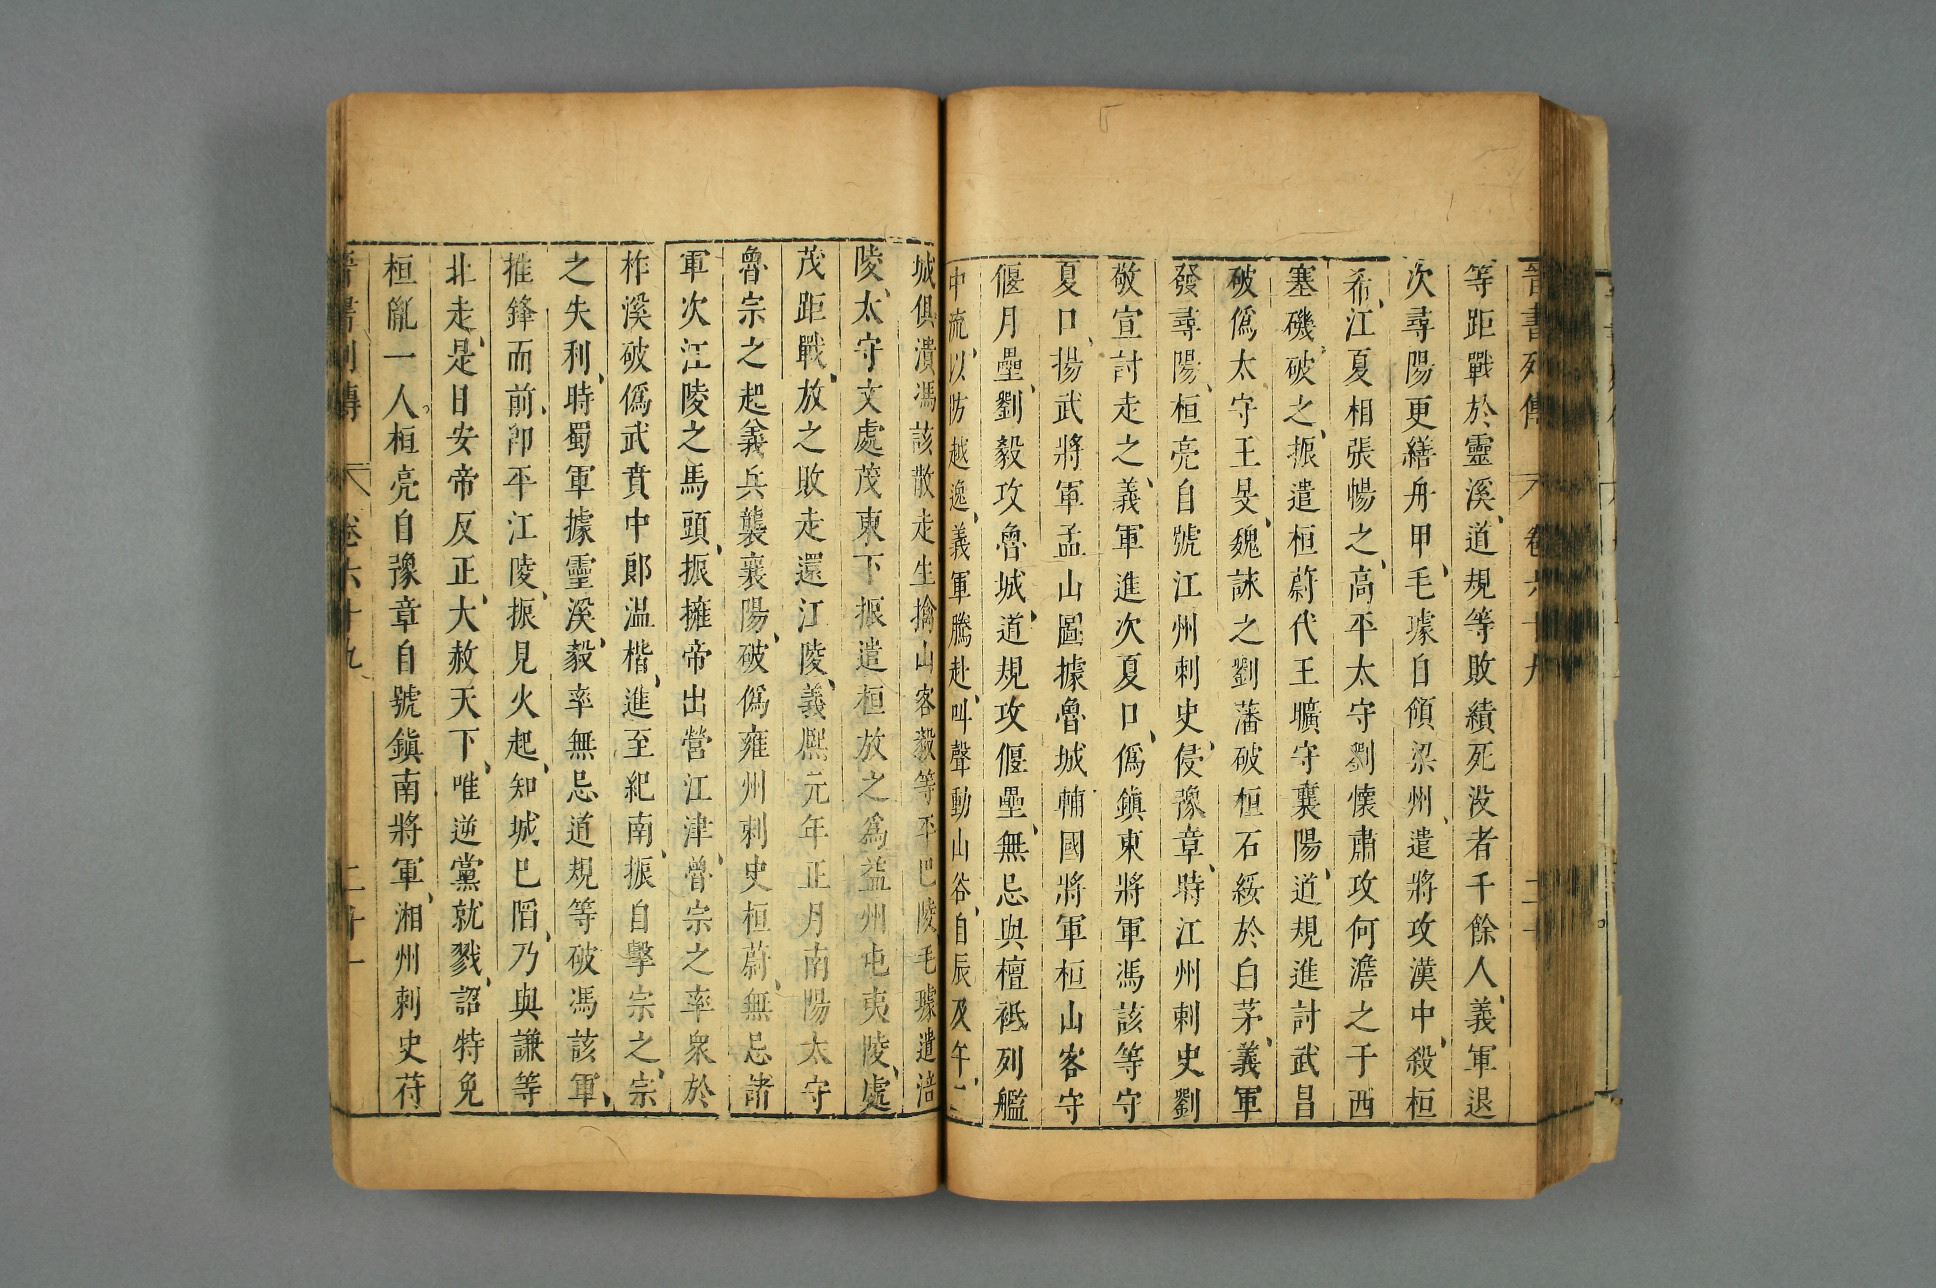 晉書列傳 卷六十九 二十
等距戰於靈溪、道規等敗績死没者千餘人、義軍退
次尋陽更繕舟甲、毛璩自領梁州、遣將攻漢中、殺桓
希、江夏相張暢之、高平太守劉懷肅攻何澹之于西
塞磯、破之、振遣桓蔚代王曠守襄陽、道規進討武昌
破僞太守王旻、魏詠之劉藩破桓石綏於白茅、義軍
發尋陽、桓亮自號江州刺史、侵豫章、時江州刺史劉
敬宣討走之、義軍進次夏口、僞鎭東將軍馮該等守
夏口、揚武將軍孟山圖據魯城、輔國將軍桓山客守
偃月壘、劉毅攻魯城、道規攻偃月壘、無忌與檀祗列艦
中流、以防越逸、義軍騰赴、叫聲動山谷、自辰及午、二
城俱潰馮該散走生擒山客毅等平巴陵、毛璩遣涪
陵、太守文處茂東下振遣桓放之爲益州屯夷陵、處
茂距戰、放之敗走還江陵、義熙元年正月南陽太守
魯宗之起義兵襲襄陽、破僞雍州刺史桓蔚、無忌諸
軍次江陵之馬頭、振擁帝出營江津、魯宗之率衆於
柞溪破僞武賁中郎温楷、進至紀南、振自擊宗之、宗
之失利、時蜀軍據靈溪、毅率無忌道規等破馮該軍、
推鋒而前、卽平江陵、振見火起、知城巳陷、乃與謙等
北走、是日安帝反正、大赦天下、唯逆黨就戮、詔特免
桓胤一人。桓亮自豫章自號鎭南將軍、湘州刺史苻
晉書列傳 卷六十九、 二十一